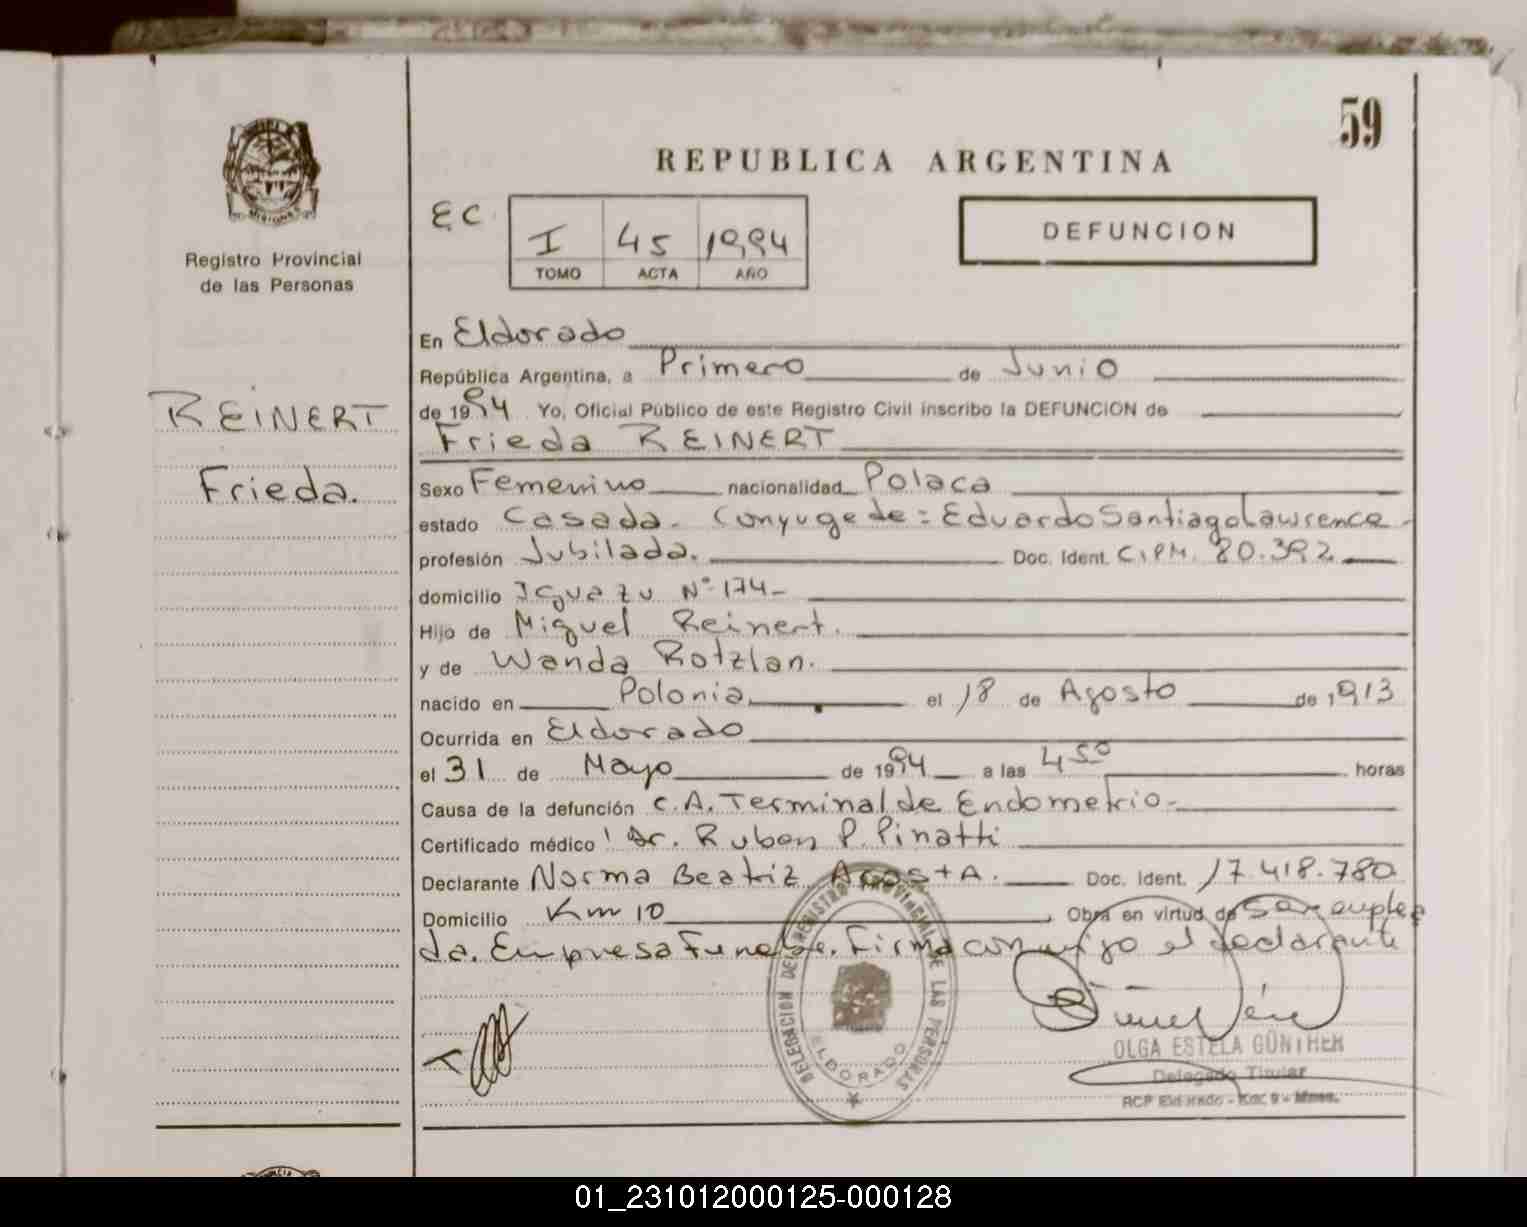 59
REPUBLICA ARGENTINA
MISIONES
Registro Provincial
de las Personas
EC
I 45 1994
TOMO ACTA AÑO
DEFUNCION
REINERT
Frieda.
En Eldorado
República Argentina, a Primero de Junio
de 1994 Yo, Oficial Público de este Registro Civil inscribo la DEFUNCION de
Frieda REINERT
Sexo Femenino nacionalidad Polaca
estado Casada. Conyuge de: Eduardo Santiago Lawrence
profesión Jubilada. Doc. Ident. C.I.P.M. 80.392
domicilio Iguazu Nº 174-
Hijo de Miguel Reinert.
y de Wanda Rotzlan.
nacido en Polonia el 18 de Agosto de 1913
Ocurrida en Eldorado
el 31 de Mayo de 1994 a las 4 50 horas
Causa de la defunción C.A. Terminal de Endometrio-
Certificado médico Dr. Ruben P. Pinatti
Declarante Norma Beatriz Acosta. Doc. Ident. 17.418.780
Domicilio Km 10 Obra en virtud de Ser emplea
da. Empresa Funebre. Firma conmigo el declarante
DELEGACION DEL REGISTRO PROVINCIAL DE LAS PERSONAS
ELDORADO
OLGA ESTELA GÜNTHER
Delegado Titular
RCP Eldorado - Km. 9 - Mnes.
01_231012000125-000128